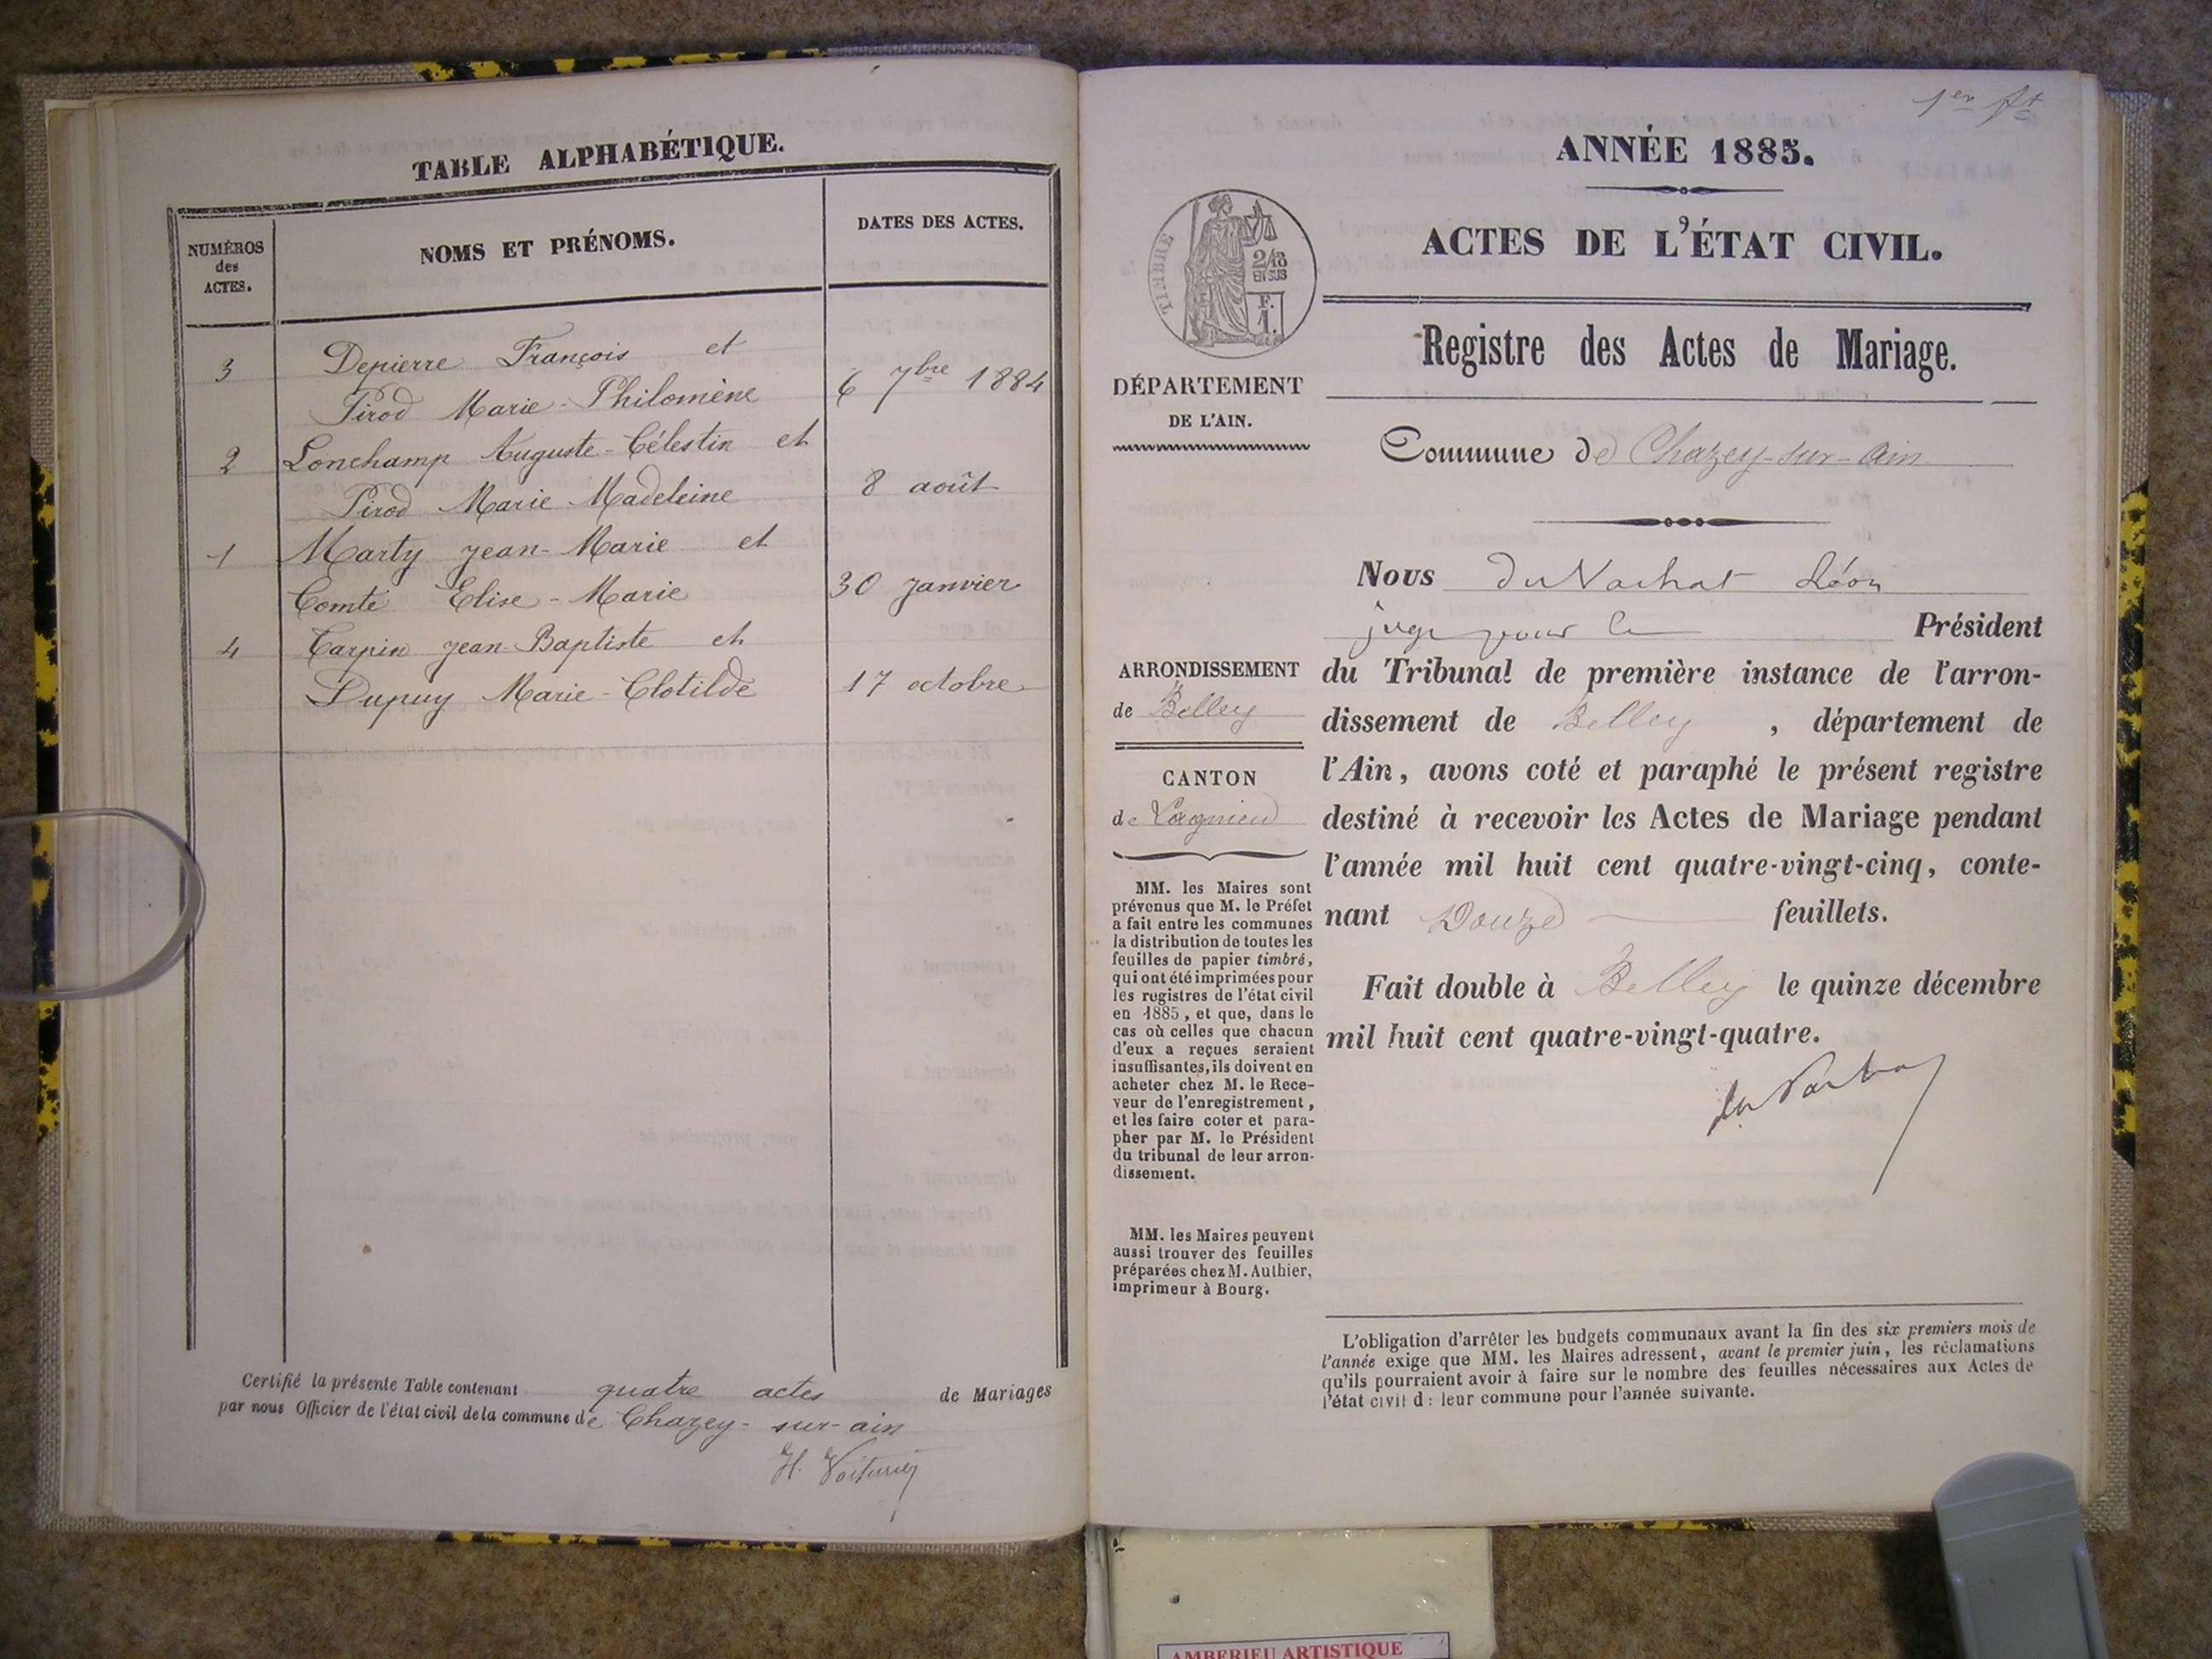 TABLE ALPHABÉTIQUE.
NUMÉROS
des
ACTES.
NOMS ET PRÉNOMS.
DATES DES ACTES.
3 Depierre François et
Pirod Marie-Philomène 6 7bre 1884
2 Lonchamp Auguste-Célestin et
Pirod Marie Madeleine 8 août
1 Marty Jean-Marie et
Comte Elise-Marie 30 janvier
4 Carpin Jean-Baptiste et
Dupuy Marie-Clotilde 17 octobre
Certifié la présente Table contenant quatre actes de Mariages
par nous Officier de l'état civil de la commune de Chazey-sur-ain
H. Voiturier
1er ft
ANNÉE 1885.
ACTES DE L'ÉTAT CIVIL.
TIMBRE
2/10
EN SUS
F.
1.
Registre des Actes de Mariage.
DÉPARTEMENT
DE L'AIN.
Commune de Chazey-sur-Ain
Nous du Vachat Léon
juge pour le Président
du Tribunal de première instance de l'arron-
dissement de Belley , département de
l'Ain, avons coté et paraphé le présent registre
destiné à recevoir les Actes de Mariage pendant
l'année mil huit cent quatre-vingt-cinq, conte-
nant Douze feuillets.
Fait double à Belley le quinze décembre
mil huit cent quatre-vingt-quatre.
du Vachat
ARRONDISSEMENT
de Belley
CANTON
de Lagnieu
MM. les Maires sont
prévenus que M. le Préfet
a fait entre les communes
la distribution de toutes les
feuilles de papier timbré,
qui ont été imprimées pour
les registres de l'état civil
en 1885, et que, dans le
cas où celles que chacun
d'eux a reçues seraient
insuffisantes, ils doivent en
acheter chez M. le Rece-
veur de l'enregistrement,
et les faire coter et para-
pher par M. le Président
du tribunal de leur arron-
dissement.
MM. les Maires peuvent
aussi trouver des feuilles
préparées chez M. Authier,
imprimeur à Bourg.
L'obligation d'arrêter les budgets communaux avant la fin des six premiers mois de
l'année exige que MM. les Maires adressent, avant le premier juin, les réclamations
qu'ils pourraient avoir à faire sur le nombre des feuilles nécessaires aux Actes de
l'état civil d: leur commune pour l'année suivante.
AMBERIEU ARTISTIQUE